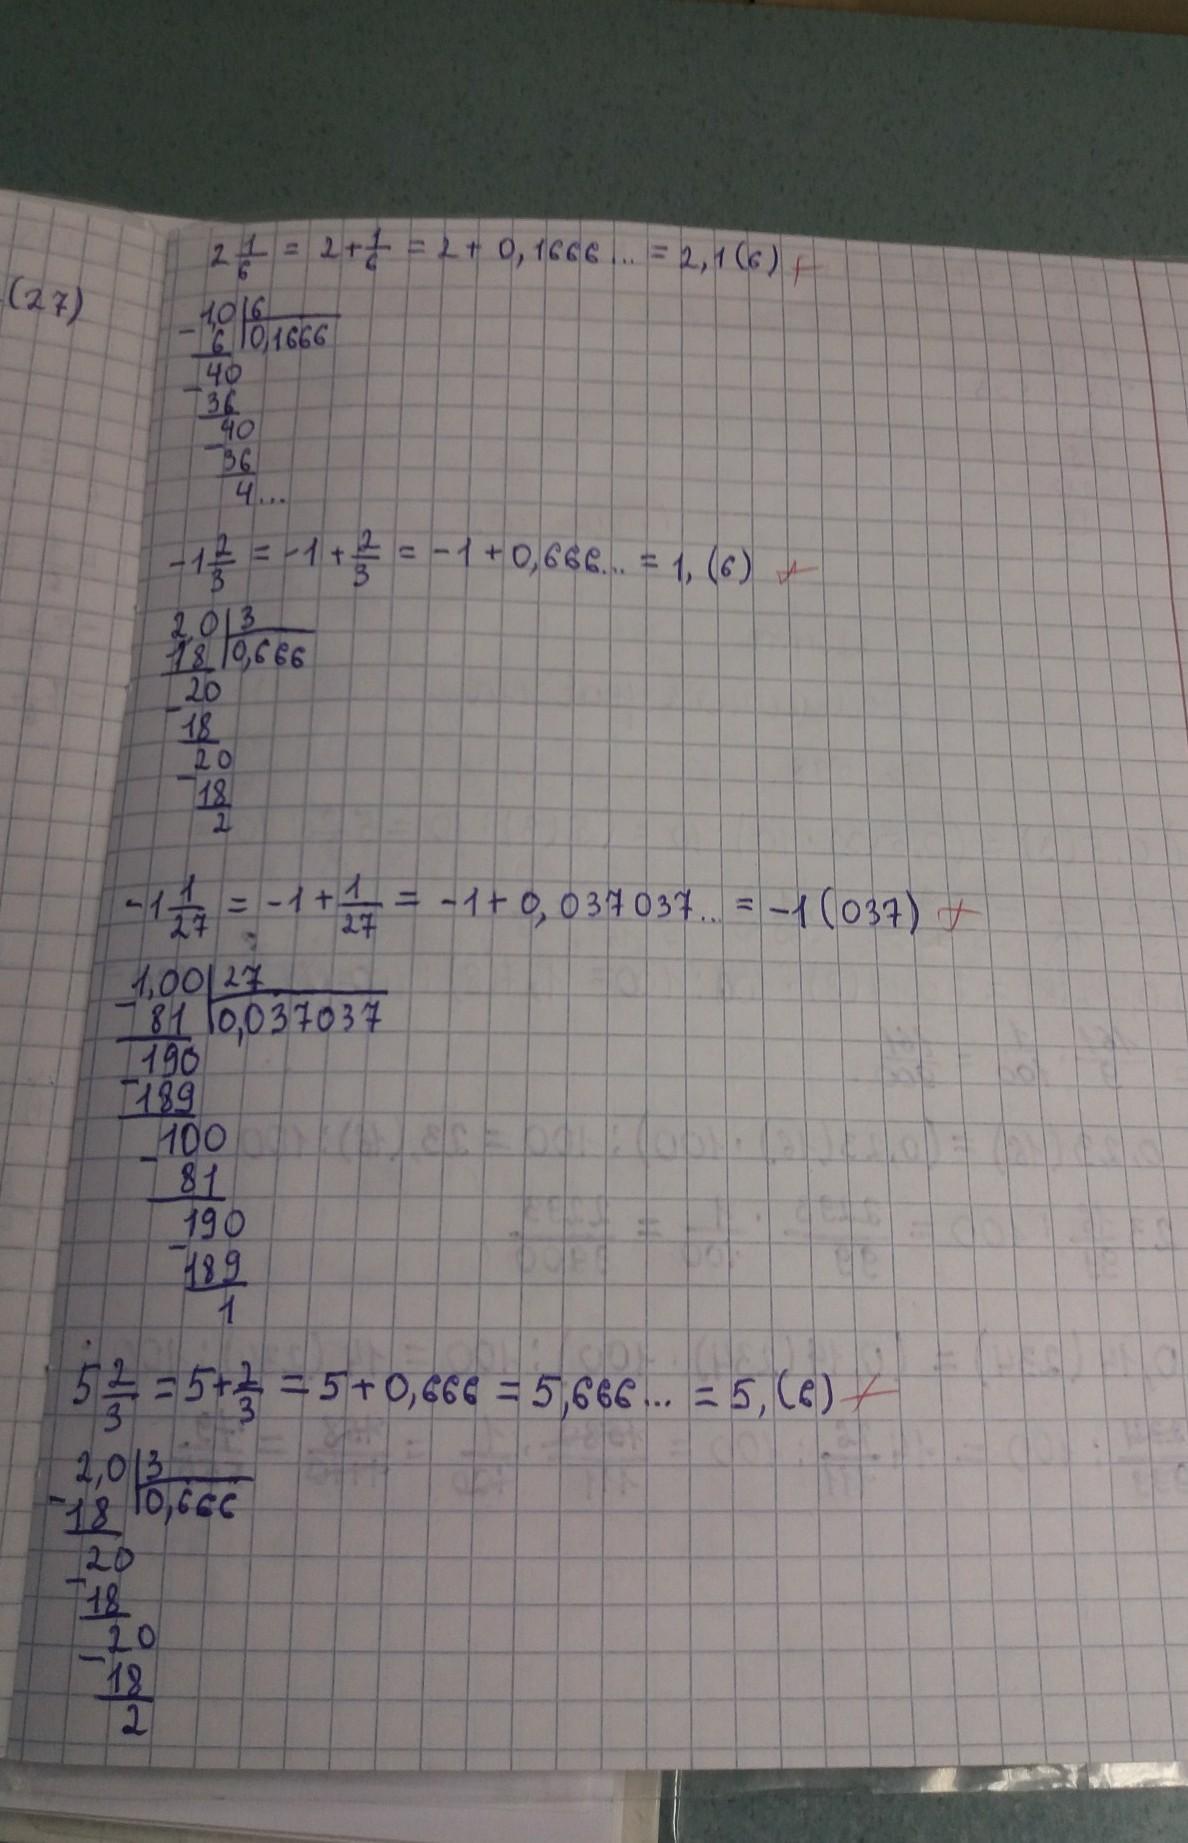 (27)
2 1/6 = 2 + 1/6 = 2 + 0,1666... = 2,1(6) +
1,0 | 6
- 6 | 0,1666
40
- 36
40
- 36
4...
-1 2/3 = -1 + 2/3 = -1 + 0,666... = 1,(6) +
2,0 | 3
18 | 0,666
20
- 18
20
- 18
2
-1 1/27 = -1 + 1/27 = -1 + 0,037037... = -1(037) +
1,00 | 27
- 81 | 0,037037
190
- 189
100
- 81
190
- 189
1
5 2/3 = 5 + 2/3 = 5 + 0,666 = 5,666... = 5,(6) +
2,0 | 3
- 18 | 0,666
20
- 18
20
- 18
2